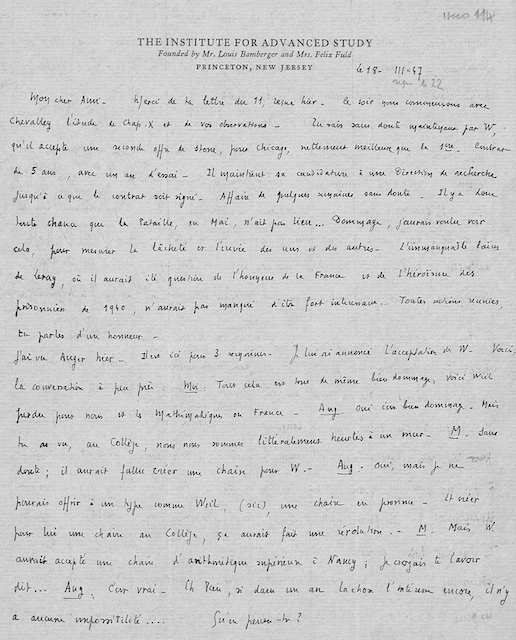 THE INSTITUTE FOR ADVANCED STUDY
Founded by Mr. Louis Bamberger and Mrs. Felix Fuld
PRINCETON, NEW JERSEY
le 18- III-47
Mon cher Ami- Merci de ta lettre du 11, reçue hier- Ce soir nous commençons avec
Chevalley l'étude de Chap. X et de vos observations- Tu sais sans doute maintenant par W,
qu'il accepte une seconde offre de Stone, pour Chicago, nettement meilleure que la 1ère. Contrat
de 5 ans, avec un an d'essai- Il maintient sa candidature à une Direction de recherche
jusqu'à ce que le contrat soit signé- Affaire de quelques semaines sans doute- Il y a donc
toute chance que la Bataille, en Mai, n'ait pas lieu... Dommage, j'aurais voulu voir
cela, pour mesurer la lâcheté et l'envie des uns et des autres- L'immanquable laïus
de Leray, où il aurait été question de l'honneur de la France et de l'héroïsme des
prisonniers de 1940, n'aurait pas manqué d'être fort intéressant. Toutes raisons réunies,
tu parles d'un honneur-
J'ai vu Auger hier- Il est ici pour 3 semaines- Je lui ai annoncé l'acceptation de W- Voici,
la conversation à peu près: Moi: Tout cela est tout de même bien dommage, voici Weil
perdu pour nous et les Mathématiques en France- Aug. Oui c'est bien dommage- Mais
tu as vu, au Collège, nous nous sommes littéralement heurtés à un mur- M. Sans
doute; il aurait fallu créer une chaire pour W.- Aug. Oui, mais je ne
pouvais offrir à un type comme Weil, (sic), une chaire en province- Et créer
pour lui une chaire au Collège, ça aurait fait une révolution.- M. Mais W.
aurait accepté une chaire d'arithmétique supérieure à Nancy; je croyais te l'avoir
dit... Aug. C'est vrai- Eh bien, si dans un an la chose l'intéresse encore, il n'y
a aucune impossibilité.... Qu'en penses-tu?